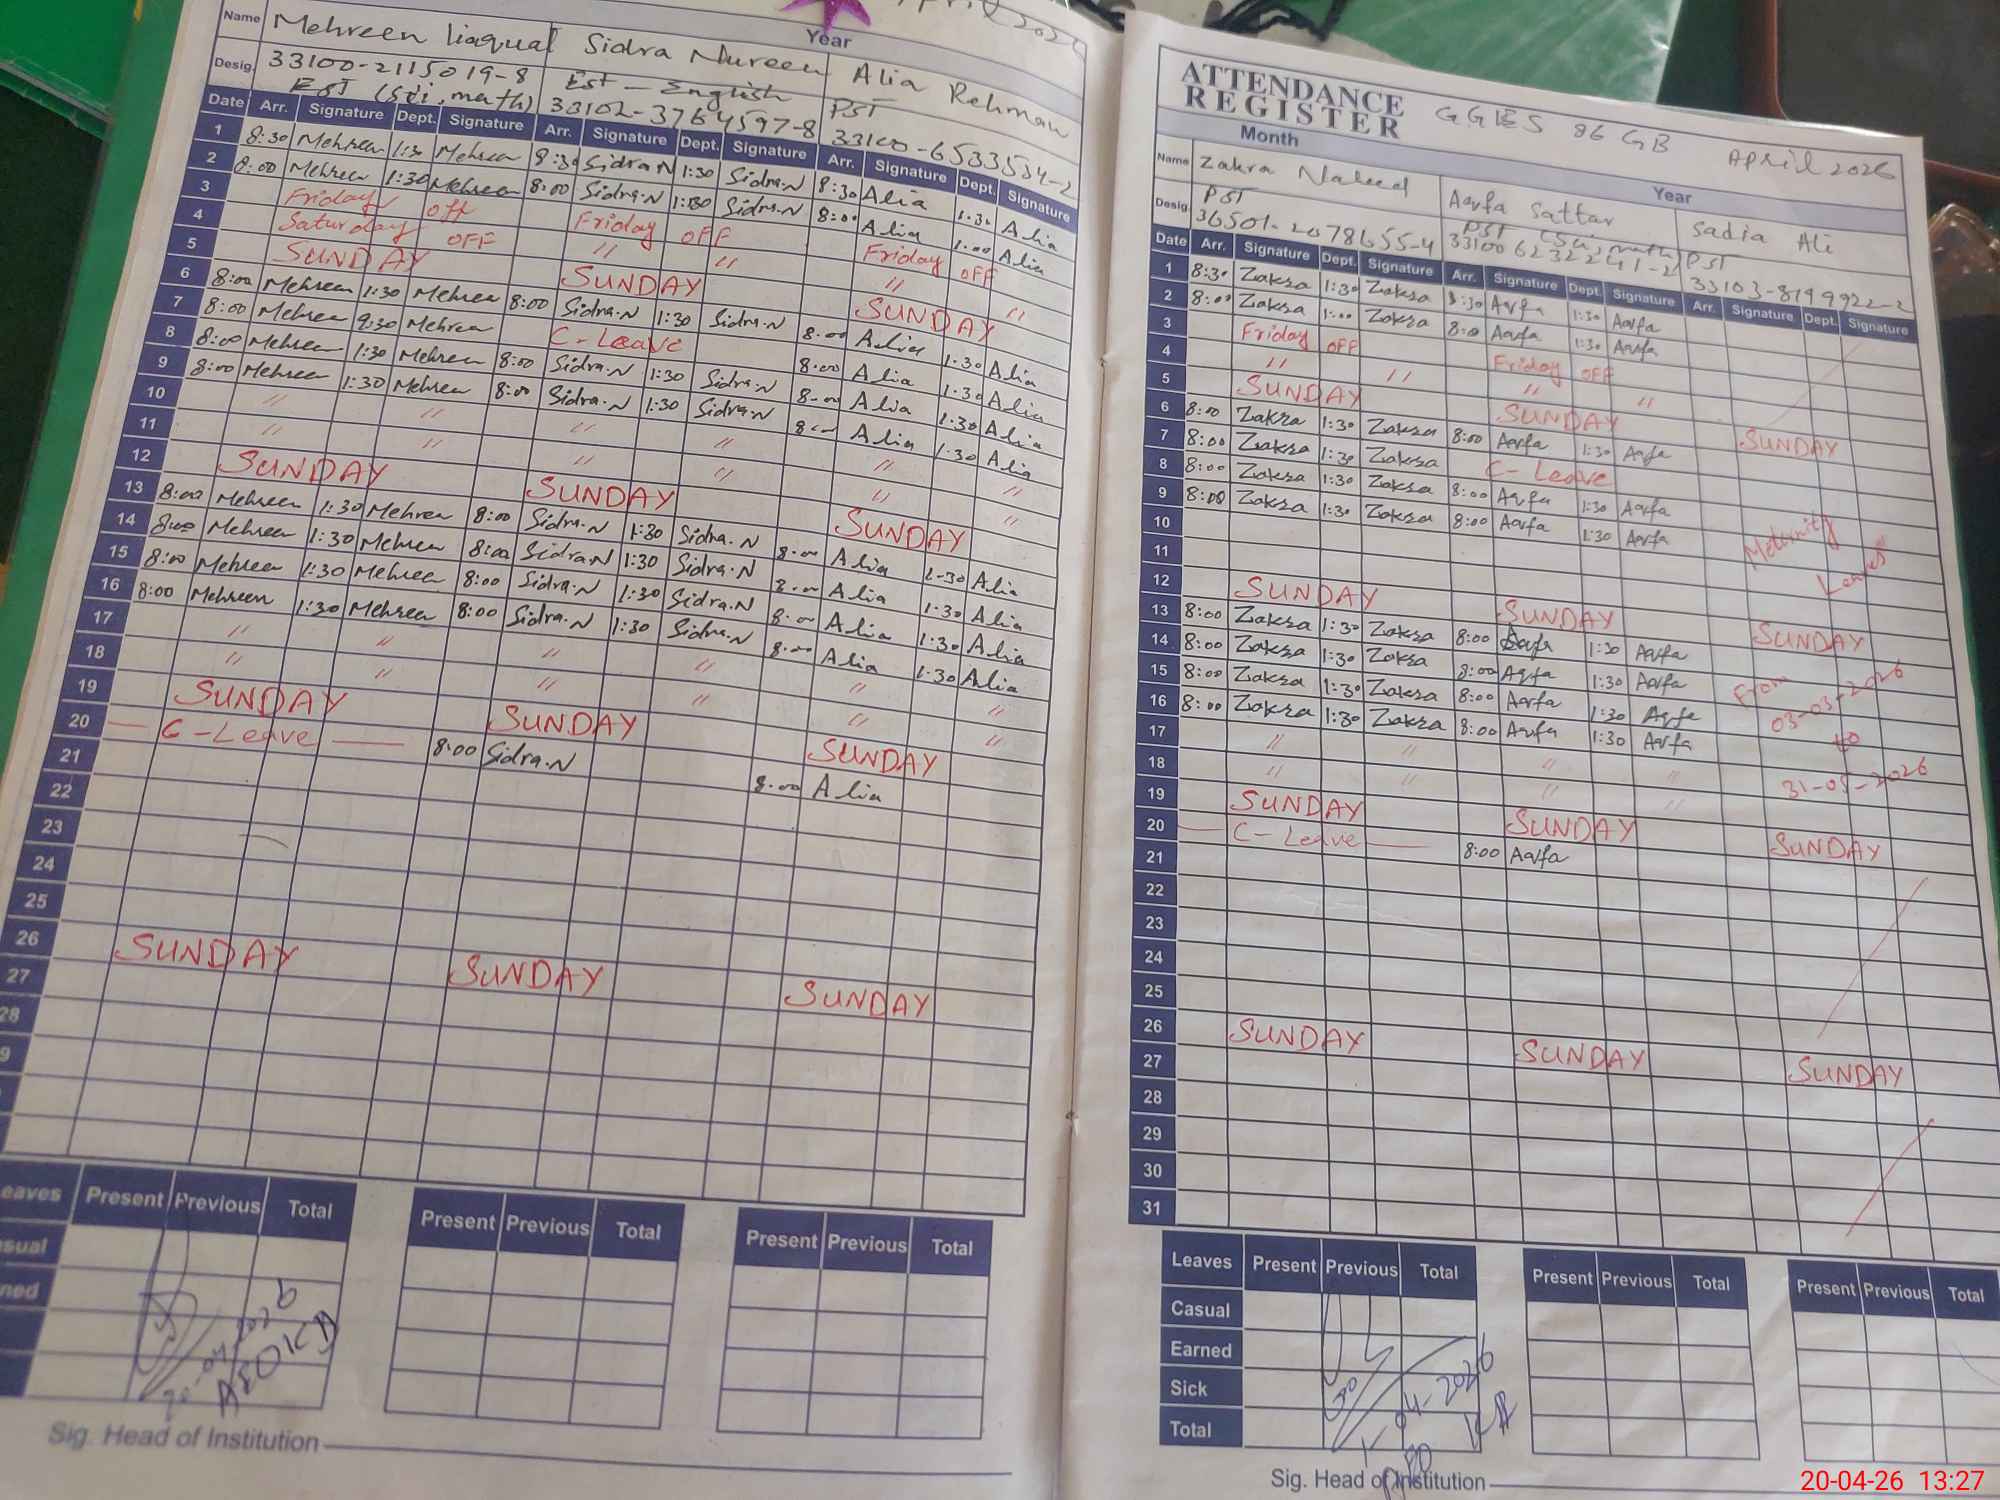 April 202
Year
Name Mehreen liaquat Sidra Nureen Alia Rehman
Desig. 33100-2115019-8 Est - English PST
EST (Sci, math) 33102-3764597-8 33100-6533534-2
Date Arr. Signature Dept. Signature Arr. Signature Dept. Signature Arr. Signature Dept. Signature
1 8:30 Mehreen 1:30 Mehreen 8:30 Sidra N 1:30 Sidra.N 8:30 Alia 1:30 Alia
2 8:00 Mehreen 1:30 Mehreen 8:00 Sidra.N 1:30 Sidra.N 8:00 Alia 1:00 Alia
3 Friday off Friday OFF Friday OFF
4 Saturday OFF " " " "
5 SUNDAY SUNDAY SUNDAY
6 8:00 Mehreen 1:30 Mehreen 8:00 Sidra.N 1:30 Sidra.N 8:00 Alia 1:30 Alia
7 8:00 Mehreen 9:30 Mehreen C-Leave 8:00 Alia 1:30 Alia
8 8:00 Mehreen 1:30 Mehreen 8:00 Sidra.N 1:30 Sidra.N 8:00 Alia 1:30 Alia
9 8:00 Mehreen 1:30 Mehreen 8:00 Sidra.N 1:30 Sidra.N 8:00 Alia 1:30 Alia
10 " " " " " "
11 " " " " " "
12 SUNDAY SUNDAY SUNDAY
13 8:00 Mehreen 1:30 Mehreen 8:00 Sidra.N 1:30 Sidra.N 8:00 Alia 1:30 Alia
14 8:00 Mehreen 1:30 Mehreen 8:00 Sidra.N 1:30 Sidra.N 8:00 Alia 1:30 Alia
15 8:00 Mehreen 1:30 Mehreen 8:00 Sidra.N 1:30 Sidra.N 8:00 Alia 1:30 Alia
16 8:00 Mehreen 1:30 Mehreen 8:00 Sidra.N 1:30 Sidra.N 8:00 Alia 1:30 Alia
17 " " " " " "
18 " " " " " "
19 SUNDAY SUNDAY SUNDAY
20 C-Leave 8:00 Sidra.N 8:00 Alia
21
22
23
24
25
26 SUNDAY SUNDAY SUNDAY
27
28
9
eaves Present Previous Total Present Previous Total Present Previous Total
sual
ned
20-04-2026
AEO KA
Sig. Head of Institution
ATTENDANCE
REGISTER
GGES 86 GB April 2026
Month Year
Name Zakra Naheed Aarfa Sattar Sadia Ali
Desig. PST PST (Sci, math) PST
36501-2078655-4 33100 6232241-2 33103-8199922-2
Date Arr. Signature Dept. Signature Arr. Signature Dept. Signature Arr. Signature Dept. Signature
1 8:30 Zakra 1:30 Zakra 8:30 Aarfa 1:30 Aarfa
2 8:00 Zakra 1:00 Zakra 8:00 Aarfa 1:30 Aarfa
3 Friday OFF Friday OFF
4 " " " "
5 SUNDAY SUNDAY SUNDAY
6 8:00 Zakra 1:30 Zakra 8:00 Aarfa 1:30 Aarfa
7 8:00 Zakra 1:30 Zakra C-Leave
8 8:00 Zakra 1:30 Zakra 8:00 Aarfa 1:30 Aarfa
9 8:00 Zakra 1:30 Zakra 8:00 Aarfa 1:30 Aarfa
10 Meternity
11 Leaves
12 SUNDAY SUNDAY SUNDAY
13 8:00 Zakra 1:30 Zakra 8:00 Aarfa 1:30 Aarfa
14 8:00 Zakra 1:30 Zakra 8:00 Aarfa 1:30 Aarfa
15 8:00 Zakra 1:30 Zakra 8:00 Aarfa 1:30 Aarfa From
16 8:00 Zakra 1:30 Zakra 8:00 Aarfa 1:30 Aarfa 03-03-2026
17 " " " " to
18 " " " " 31-05-2026
19 SUNDAY SUNDAY SUNDAY
20 C-Leave 8:00 Aarfa
21
22
23
24
25
26 SUNDAY SUNDAY SUNDAY
27
28
29
30
31
Leaves Present Previous Total Present Previous Total Present Previous Total
Casual
Earned
Sick
Total
04-2026
KA
Sig. Head of Institution
20-04-26 13:27